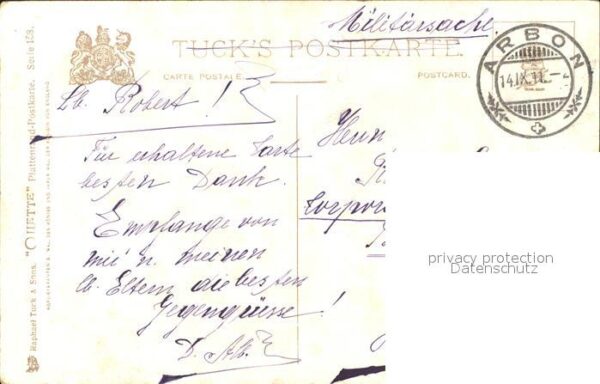 Militärsache.
TUCK'S POSTKARTE.
CARTE POSTALE.
POSTCARD.
ARBON
14.IX.11.
Lb. Robert!
Für erhaltene Karte
besten Dank.
Empfange von
mir u. meinen
lb. Eltern die besten
Gegengrüsse!
D. Alb.
Herrn
Corpor
privacy protection
Datenschutz
Raphael Tuck & Sons. "OILETTE" Platten-Bild-Postkarte. Serie 128.